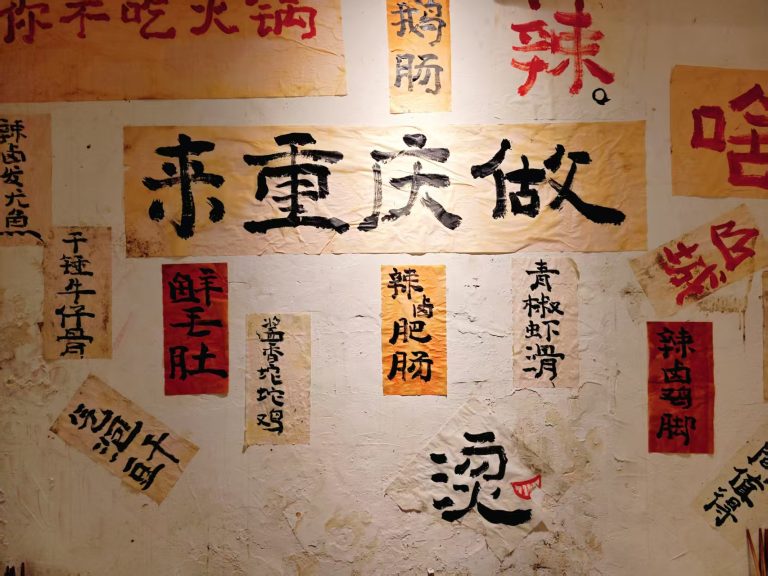 你不吃火锅
鹅肠
辣。
啥
来重庆做
辣卤发尤鱼
干锤牛仔骨
鲜毛肚
酱香坨坨鸡
辣卤
肥肠
青椒虾滑
辣卤鸡脚
包泡豆干
烫
值得